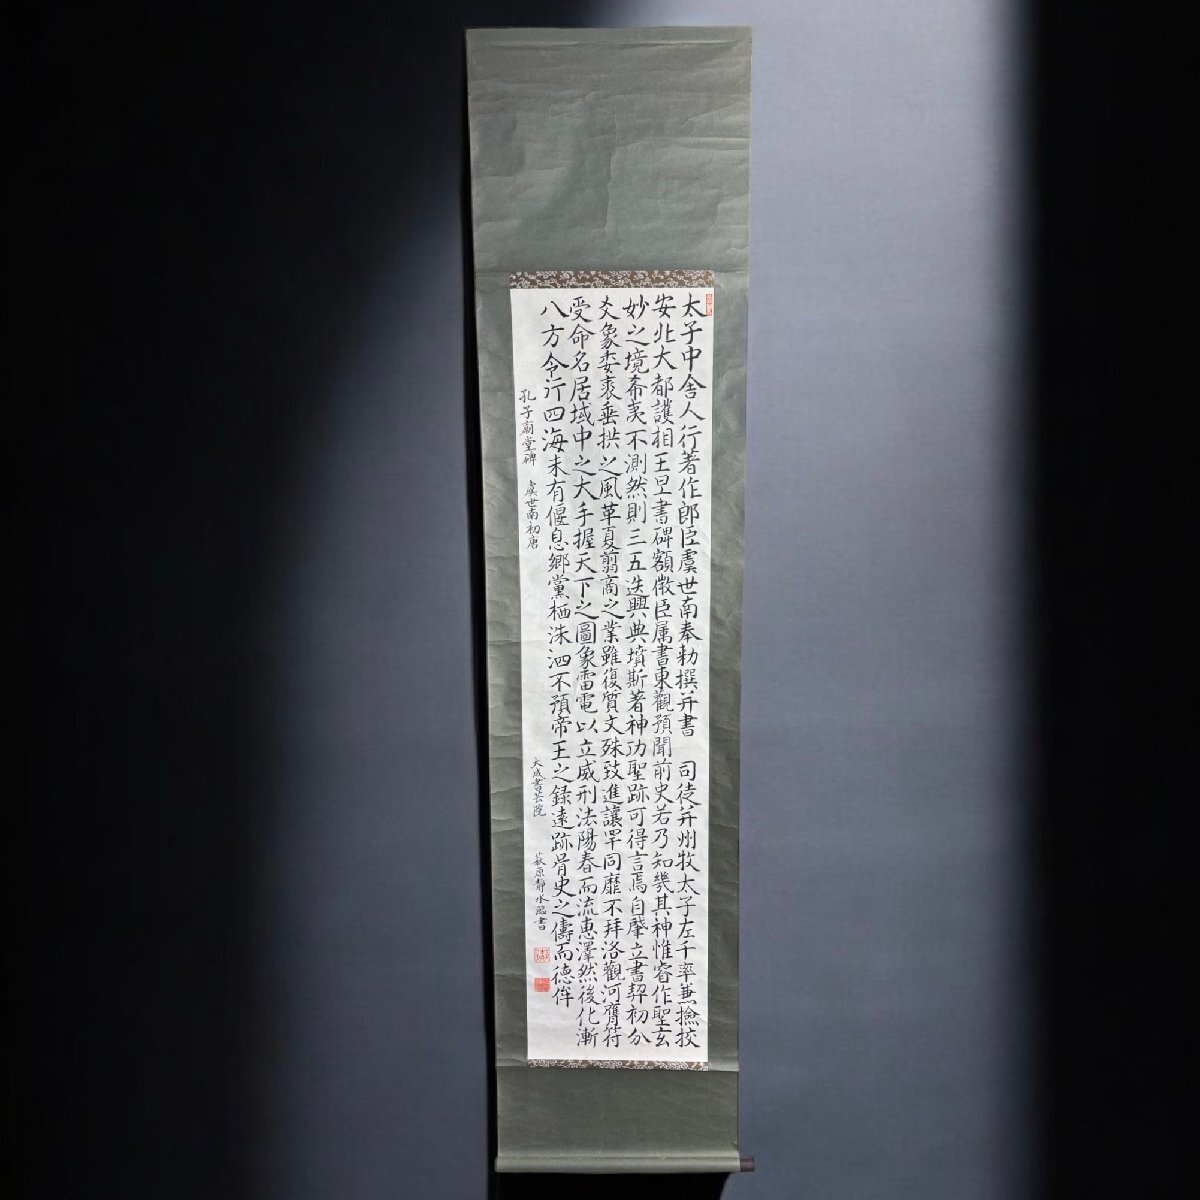 太子中舎人行著作郎臣虞世南奉勅撰并書　司徒并州牧太子左千率兼撿挍
安北大都護相王旦書碑額徴臣属書東觀預聞前史若乃知幾其神惟睿作聖玄
妙之境希夷不測然則三五迭興典墳斯著神功聖跡可得言焉自肇立書契初分
爻象委裘垂拱之風革夏翦商之業雖復質文殊致進讓罕同靡不拜洛觀河膺符
受命名居域中之大手握天下之圖象雷電以立威刑法陽春而流恵澤然後化漸
八方令行四海未有偃息郷黨栖洙泗不預帝王之録遠跡胥史之儔而徳侔
孔子廟堂碑　虞世南初唐
大成書芸院　萩原静水臨書